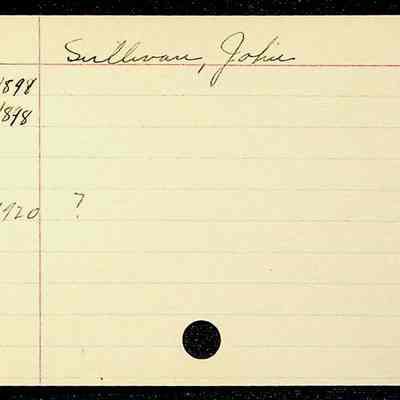 Sullivan, John
1898
1898
1920 ?